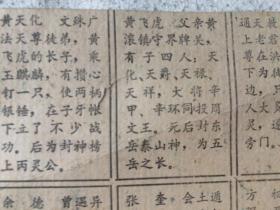 黄天化 文殊广
法天尊徒弟，黄
飞虎的长子，乘
玉麒麟，有攒心
钉一只，使两柄
银锤，在子牙帐
下立了不少战
功。后为封神榜
上丙灵公。
黄飞虎 父亲黄
滚镇守界牌关，
有子四人：天
化、天爵、天禄、
天祥，大将辛
甲、辛环同投周
文王。元后封东
岳泰山神，为五
岳之长。
通天
上老君
尊在洪
下为徒
边，只
人大
道，
旁门、
余德 曾遇异
张奎 会土遁
方